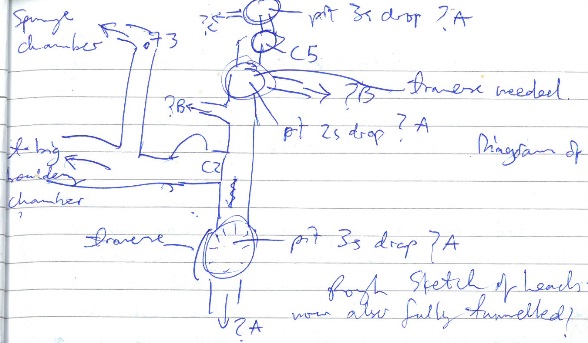 Sponge
chamber
73
?C
pit 3s drop ?A
C5
?B
traverse needed.
?B
pit 2s drop ?A
Diagram of
to big
boulder
chamber
?
C2
traverse
pit 3s drop ?A
?A
Rough Sketch of Leads
now also fully tunnelled?